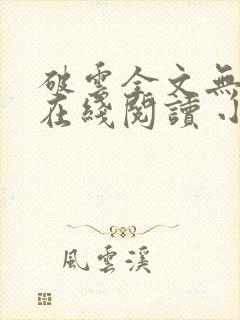 破雲全文無
在綫閱讀 小
風雲溪